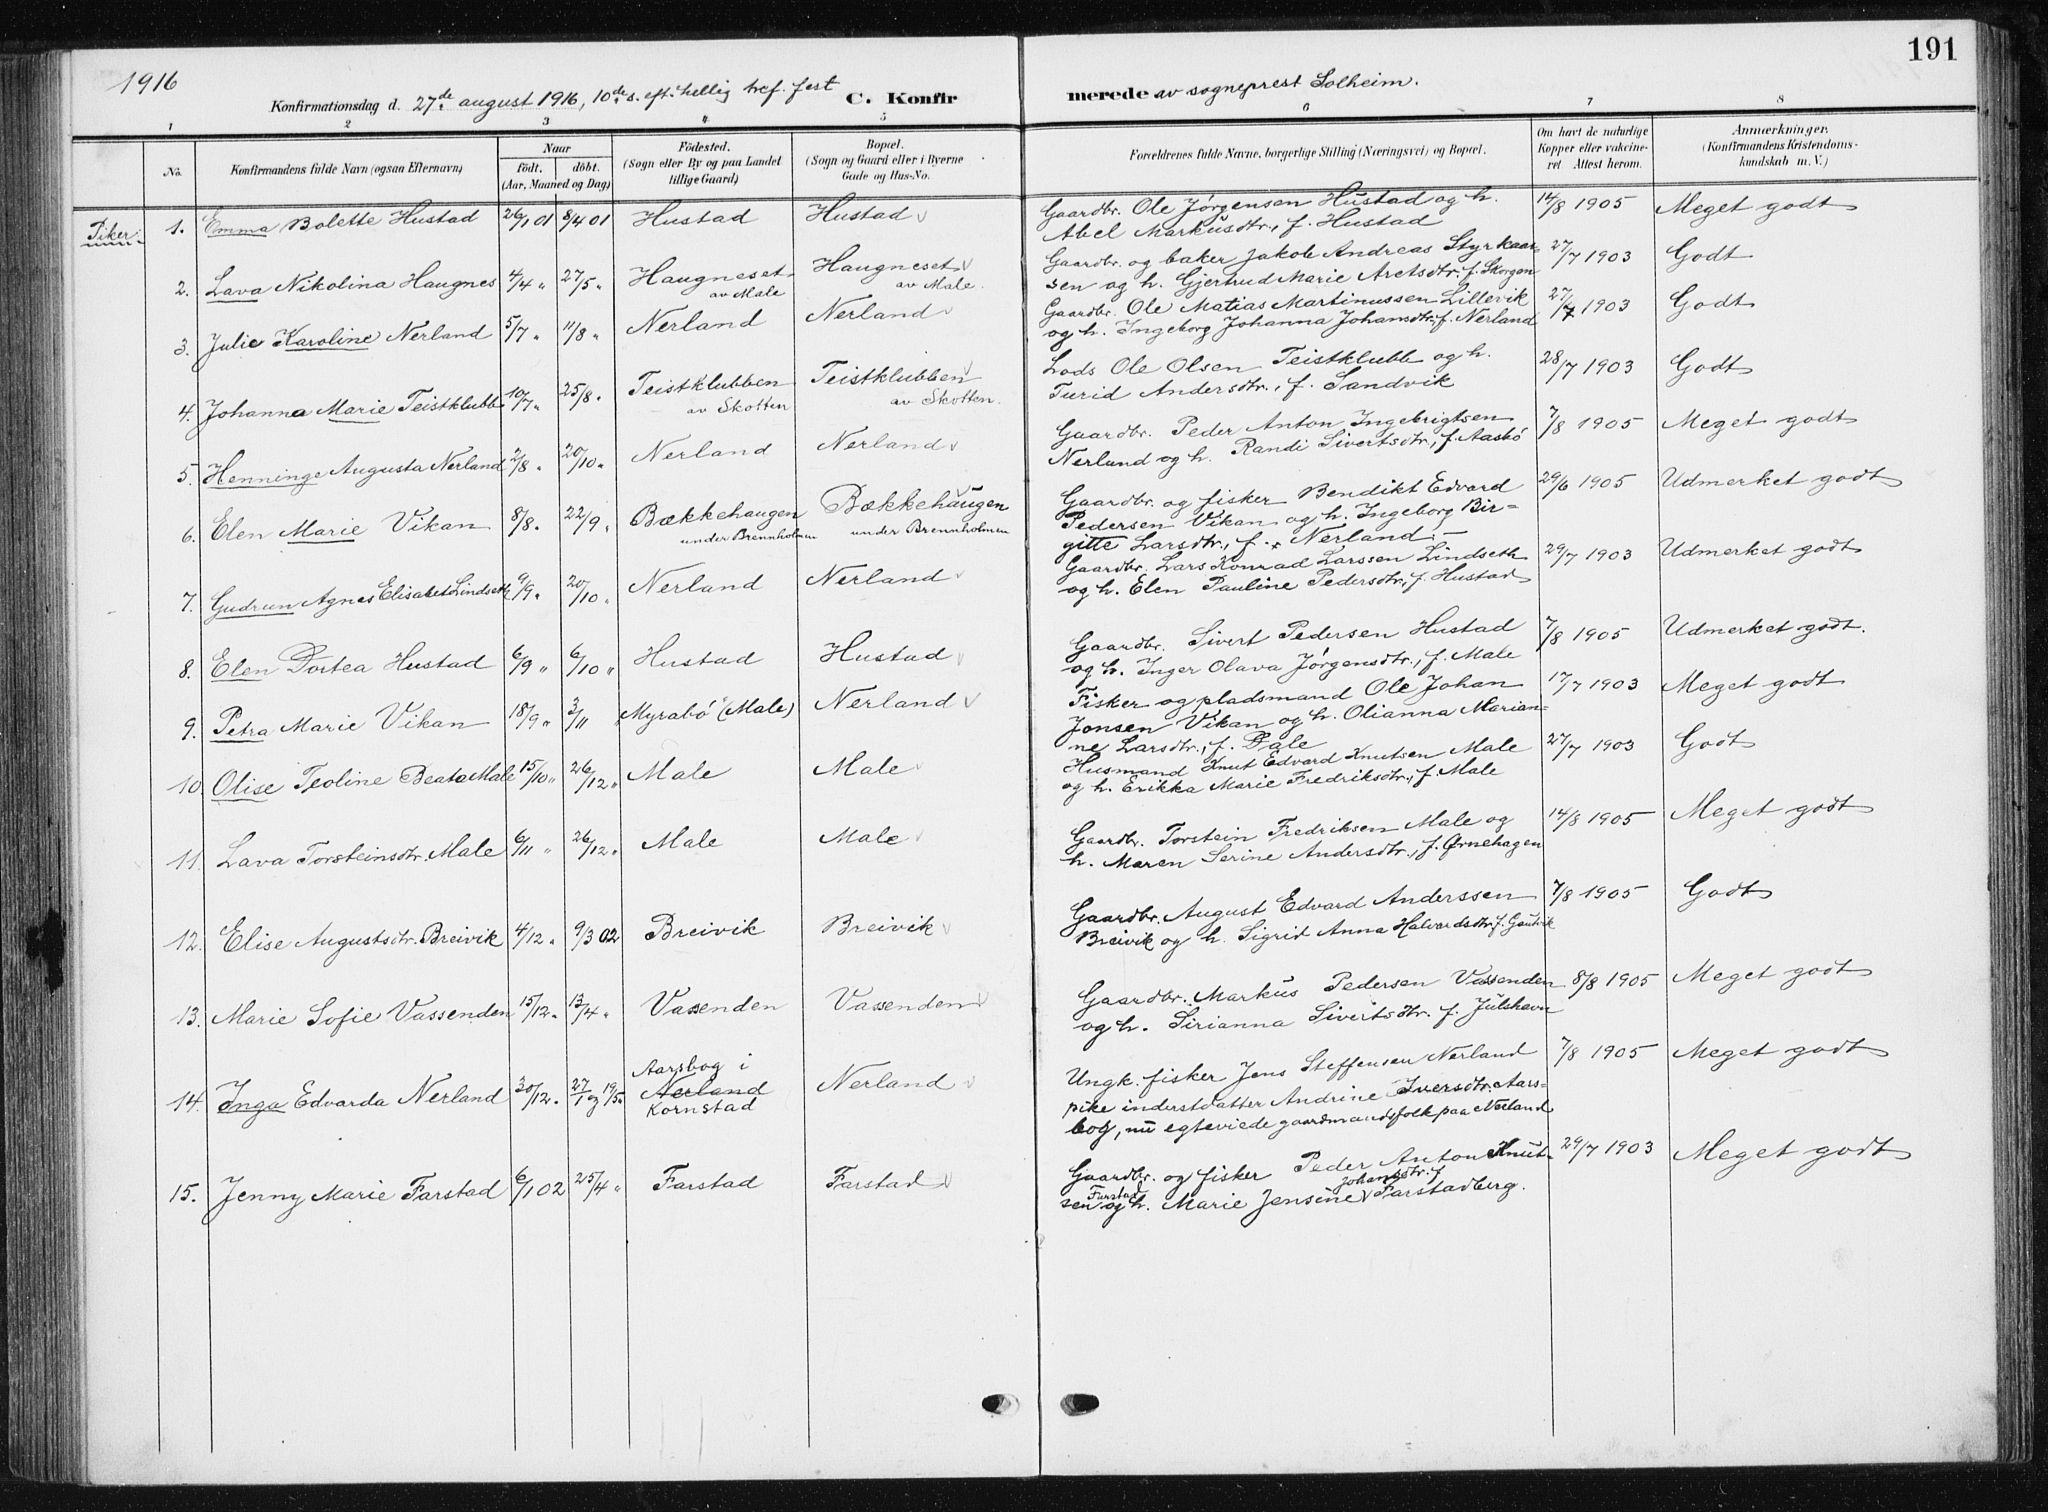 191
1916
Konfirmationsdag d. 27de august 1916, 10de s. eft. hellig tref. fest C. Konfirmerede av sogneprest Solheim.
1 2 3 4 5 6 7 8
No. Konfirmandens fulde Navn (ogsaa Efternavn) Naar født. døbt. (Aar, Maaned og Dag) Fødested. (Sogn eller By og paa Landet tillige Gaard) Bopæl. (Sogn og Gaard eller i Byerne Gade og Hus-No. Forældrenes fulde Navne, borgerlige Stilling (Næringsvei) og Bopæl. Om havt de naturlige Kopper eller vaccineret. Attest herom. Anmærkninger. (Konfirmandens Kristendomskundskab m. V.)
Piker:
1. Emma Bolette Hustad 26/1 01 8/4 01 Hustad Hustad Gaardbr. Ole Jørgensen Hustad og h.
Abel Markusdtr., f. Hustad 14/8 1905 Meget godt
2. Lava Nikolina Haugnes 4/4 " 27/5 " Haugneset av Male Haugneset av Male. Gaardbr. og baker Jakob Andreas Styrkaar-
sen og h. Gjertrud Marie Aretsdtr. f. Skorgen 27/7 1903 Godt
3. Julie Karoline Nerland 5/7 " 11/8 " Nerland Nerland Gaardbr. Ole Matias Martinussen Lillevik
og h. Ingeborg Johanna Johansdtr., f. Nerland 27/7 1903 Godt
4. Johanna Marie Teistklubb 10/7 " 25/8 " Teistklubben av Skotten Teistklubben av Skotten. Lods Ole Olsen Teistklubb og h.
Turid Andersdtr., f. Sandvik 28/7 1903 Godt
5. Henninge Augusta Nerland 2/8 " 20/10 " Nerland Nerland Gaardbr. Peder Anton Ingebrigtsen
Nerland og h. Randi Sivertsdtr., f. Aasbø 7/8 1905 Meget godt
6. Elen Marie Vikan 8/8 " 22/9 " Bækkehaugen under Brennholmen Bækkehaugen under Brennholmen Gaardbr. og fisker Bendikt Edvard
Pedersen Vikan og h. Ingeborg Bir-
gitte Larsdtr., f. Nerland.- 29/6 1905 Udmerket godt
7. Gudrun Agnes Elisabet Lindseth 9/9 " 20/10 " Nerland Nerland Gaardbr. Lars Konrad Larssen Lindseth
og h. Elen Pauline Pedersdtr., f. Hustad 29/7 1903 Udmerket godt
8. Elen Dortea Hustad 6/9 " 6/10 " Hustad Hustad Gaardbr. Sivert Pedersen Hustad
og h. Inger Olava Jørgensdtr., f. Male 7/8 1905 Udmerket godt.
9. Petra Marie Vikan 18/9 " 3/11 " Myrabø (Male) Nerland Fisker og pladsmand Ole Johan
Jonsen Vikan og h. Olianna Marian-
ne Larsdtr., f. Dale 17/7 1903 Meget godt
10. Olise Teoline Beata Male 15/10 " 26/12 " Male Male Husmand Knut Edvard Knutsen Male
og h. Erikka Marie Fredriksdtr., f. Male 27/7 1903 Godt
11. Lava Torsteinsdtr. Male 6/11 " 26/12 " Male Male Gaardbr. Torstein Fredriksen Male og
h. Maren Serine Andersdtr., f. Ørnehagen 14/8 1905 Meget godt
12. Elise Augustsdtr. Breivik 4/12 " 9/3 02 Breivik Breivik Gaardbr. August Edvard Anderssen
Breivik og h. Sigrid Anna Halvardsdtr. f. Gautvik 7/8 1905 Godt
13. Marie Sofie Vassenden 15/12 " 13/4 " Vassenden Vassenden Gaardbr. Markus Pedersen Vassenden
og h. Sirianna Sivertsdtr. f. Julshavn 8/8 1905 Meget godt
14. Inga Edvarda Nerland 30/12 " 27/1 og 19/5 " Aarsbog i Nerland Kornstad Nerland Ungk. fisker Jens Steffensen Nerland
pike inderstdatter Andrine Iversdtr. Aars-
bog, nu egteviede gaardmandsfolk paa Nerland 7/8 1905 Meget godt
15. Jenny Marie Farstad 6/1 02 25/4 " Farstad Farstad Gaardbr. og fisker Peder Anton Knut-
sen Farstad og h. Marie Jensine Johansdtr. f. Farstadberg. 29/7 1903 Meget godt